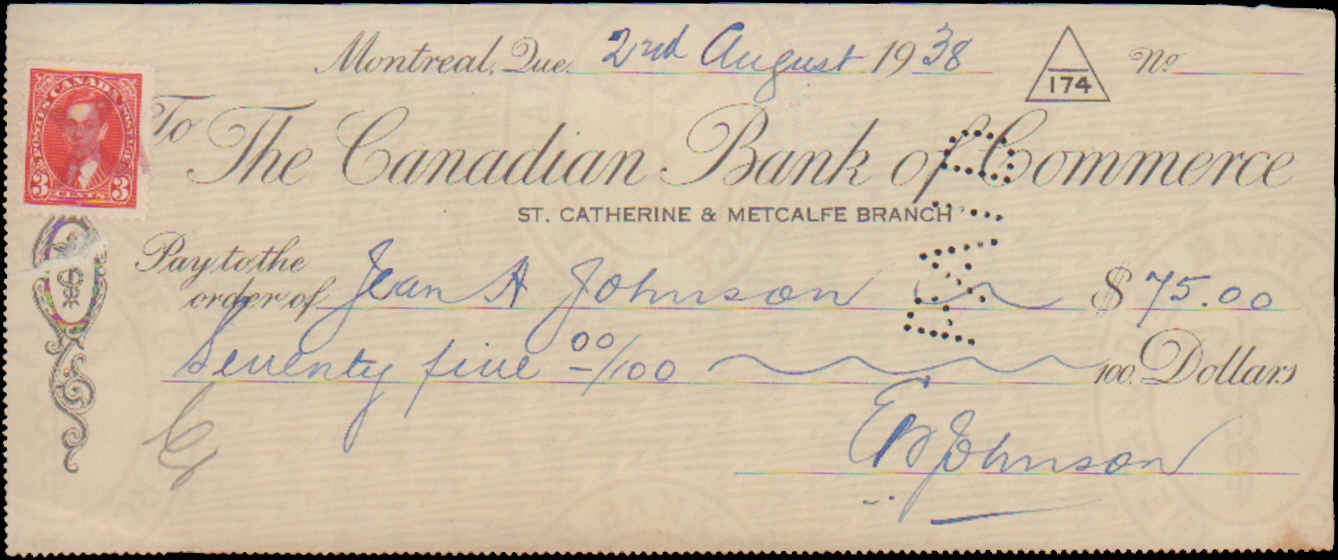 Montreal, Que. 2nd August 1938 174 No.
CANADA
POSTES POSTAGE
3 CENTS 3
To The Canadian Bank of Commerce
ST. CATHERINE & METCALFE BRANCH
Pay to the
order of Jean A Johnson $ 75.00
Seventy five 00/100 100 Dollars
Johnson